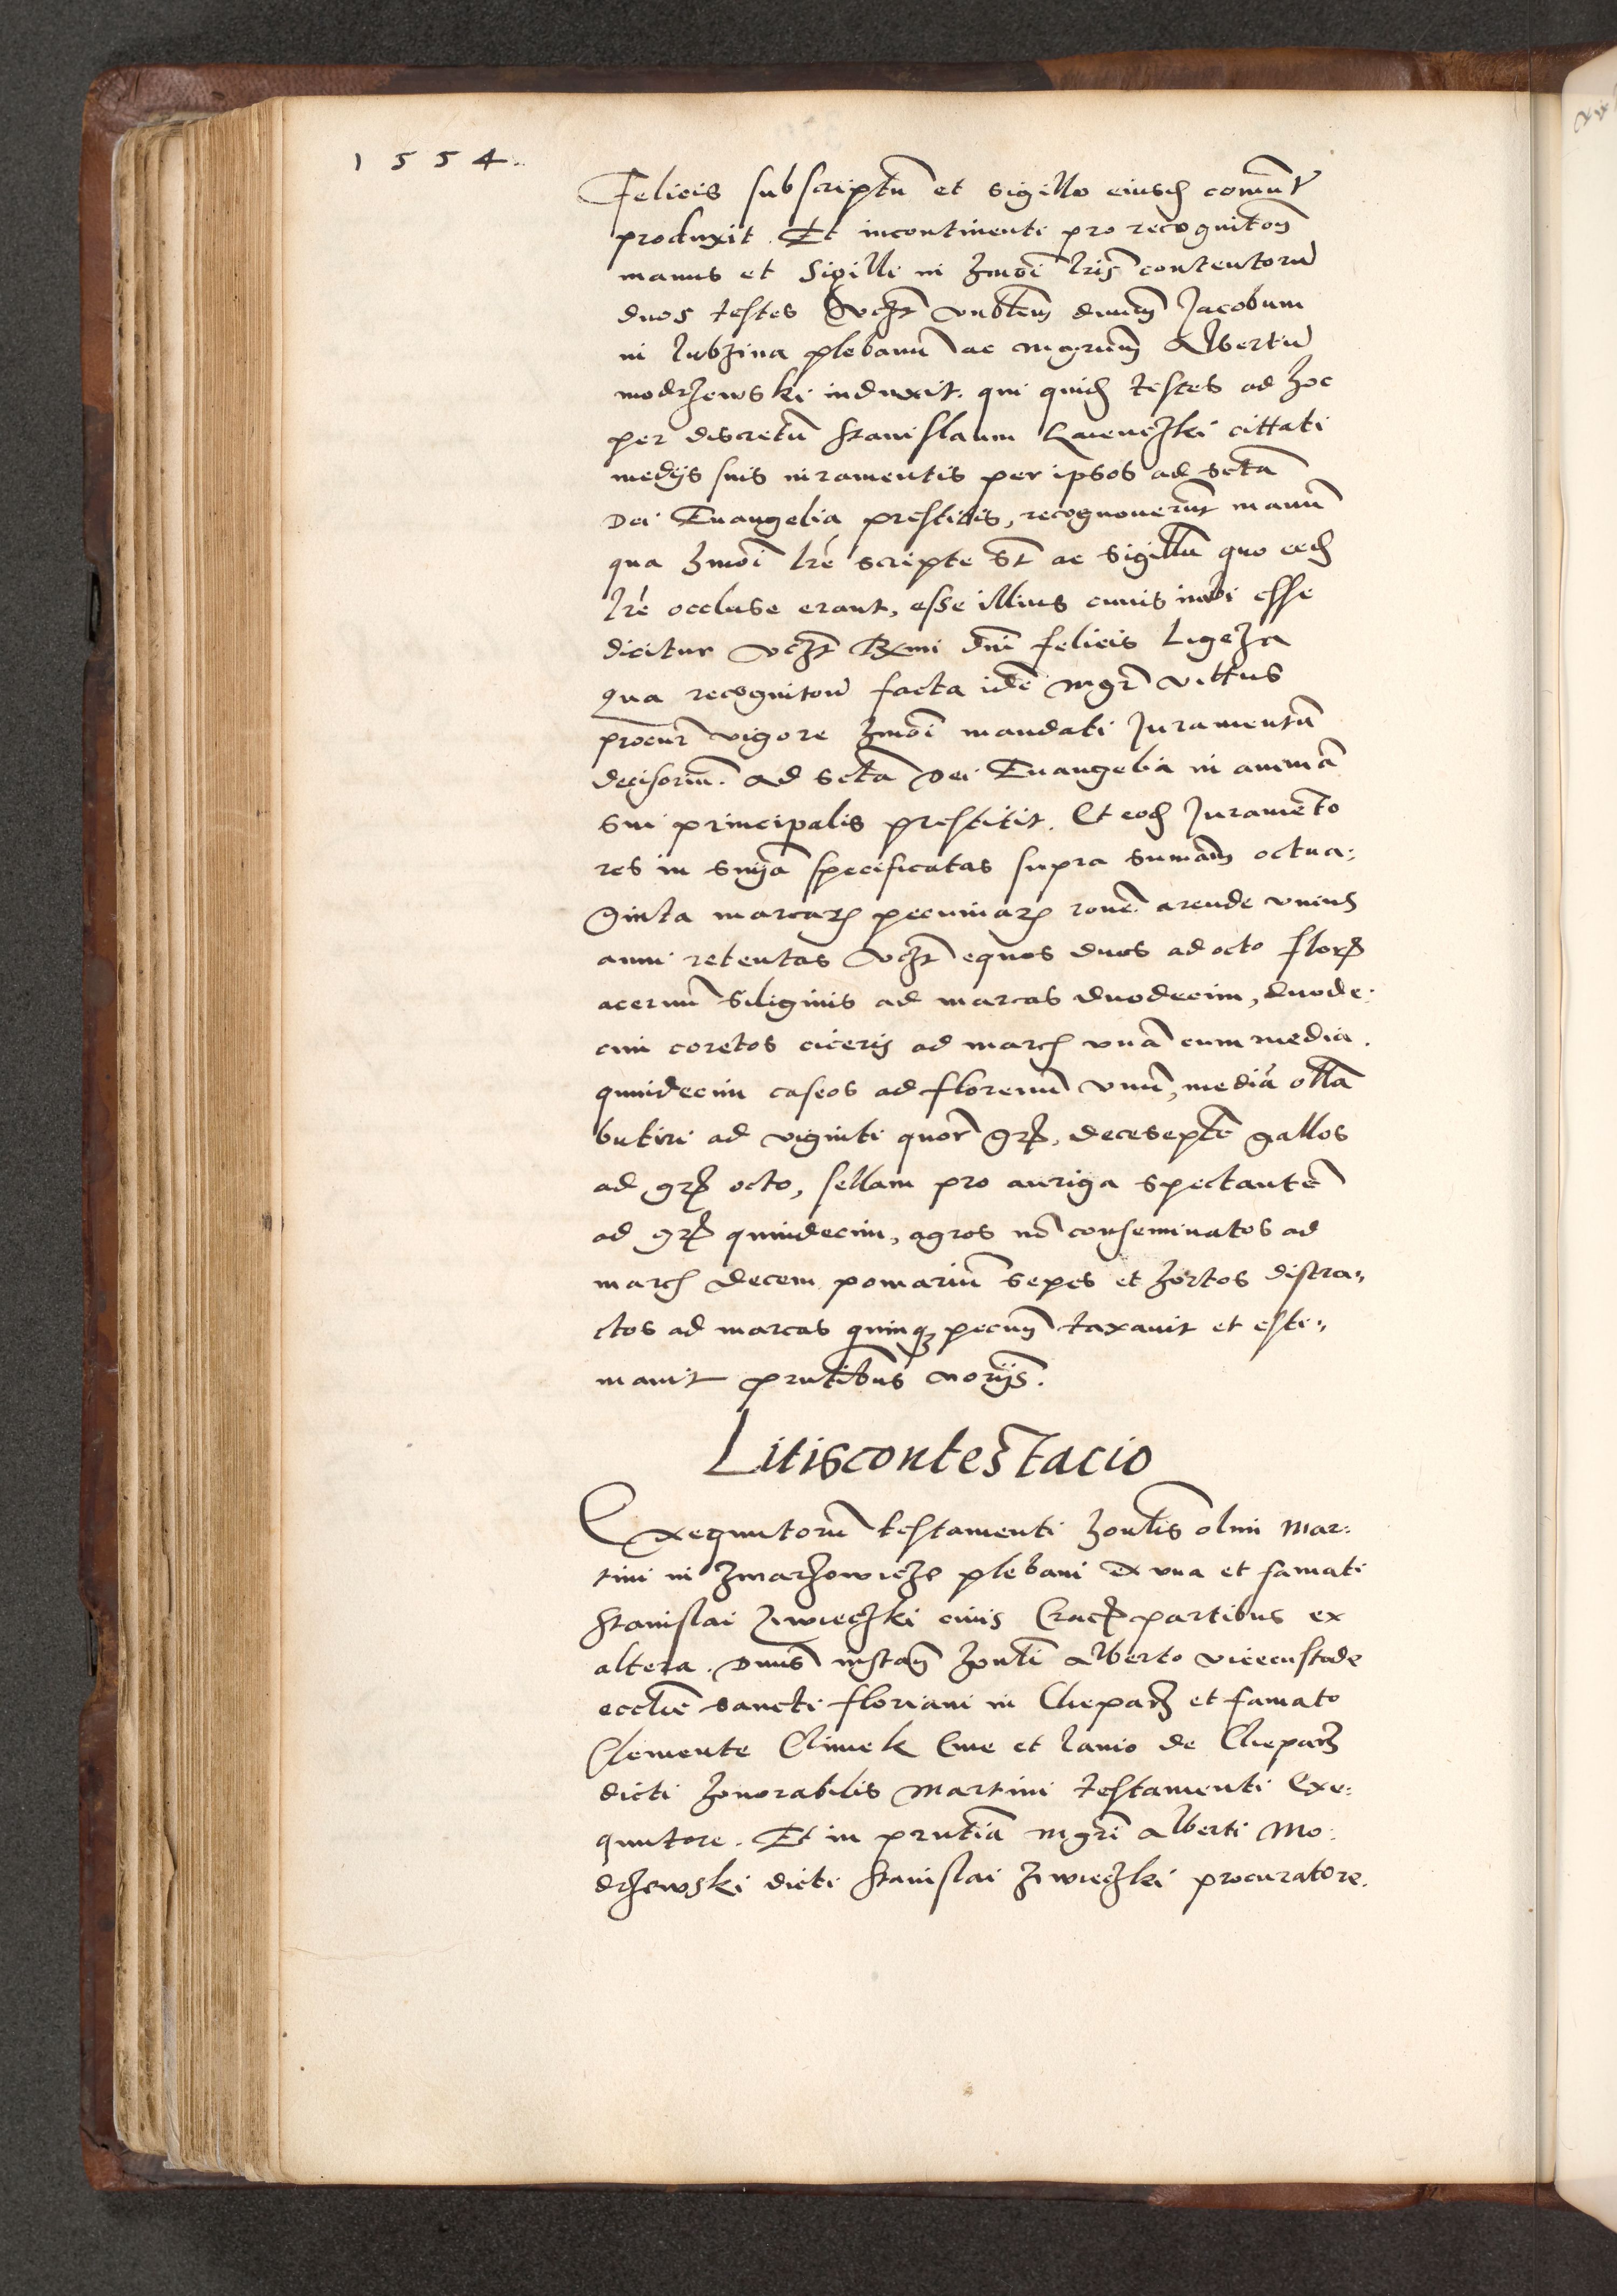 1554.
Felicis subscriptũ et sigillo eiusd comũt
produxit. Et incontinenti pro recognitoñ
manus et Sigilli in hmõi lris contentorũ
duos testes vcȝt vnblem dnum Jacobum
in lubzina plebanũ ac mgrum Albertũ
modrzewski induxit. qui quid testes ad hoc
per discretũ Stanislaum cittati
medys suis iuramentis per ipsos ad sctã
Dei Euangelia prestitis, recognouerũt manũ
qua hmõi lre scripte st̃ ac sigillũ quo eed
lre occluse erant, esse illius cuius esse
dicitur vcȝt Rmi dni felicis Ligeza
Qua recognitoñ facta idẽ mgr̃ vittus
procur̃ vigore hmõi mandati Juramentũ
decisoriũ. ad sctã Dei Euangelia in animã
sui principalis prestitit. Et eod Juramẽto
res in sniã specificatas supra sumãm octua:
ginta marcarȝ pecuniarȝ ronẽ arende vnius
anni retentas vcȝt equos duos ad octo florȝ
aceruũ siliginis ad marcas duodecim, duode:
cim coretos ciceris ad marc vnã cum media.
quindecim caseos ad florenũ vnũ, mediã ollã
butiri ad viginti quor̃ grȝ, deceseptẽ gallos
ad grȝ octo, sellam pro auriga spectantẽ
ad grȝ quindecim, agros nõ conseminatos ad
marc decem pomariũ sepes et hortos distra,,
ctos ad marcas quinqȝ pecuñ taxauit et esti,,
mauit prntibus noryis.
Litiscontestacio
Exequutorũ testamenti honlis olim Mar:
tini in Zmarzowicze plebani ex vna et famati
Stanislai Ziwieczki ciuis Cracȝ partibus ex
altera. Dnus instañ honli Alberto vicecustode
ecclie sancti floriani in Cleparȝ et famato
Clemente Climek Ciue et lanio de Cleparȝ
dicti honorabilis Martini testamenti Exe:
quutore. Et in prntiã mgri Alberti Mo:
drzewski dicti Stanislai Ziwieczki procuratore.